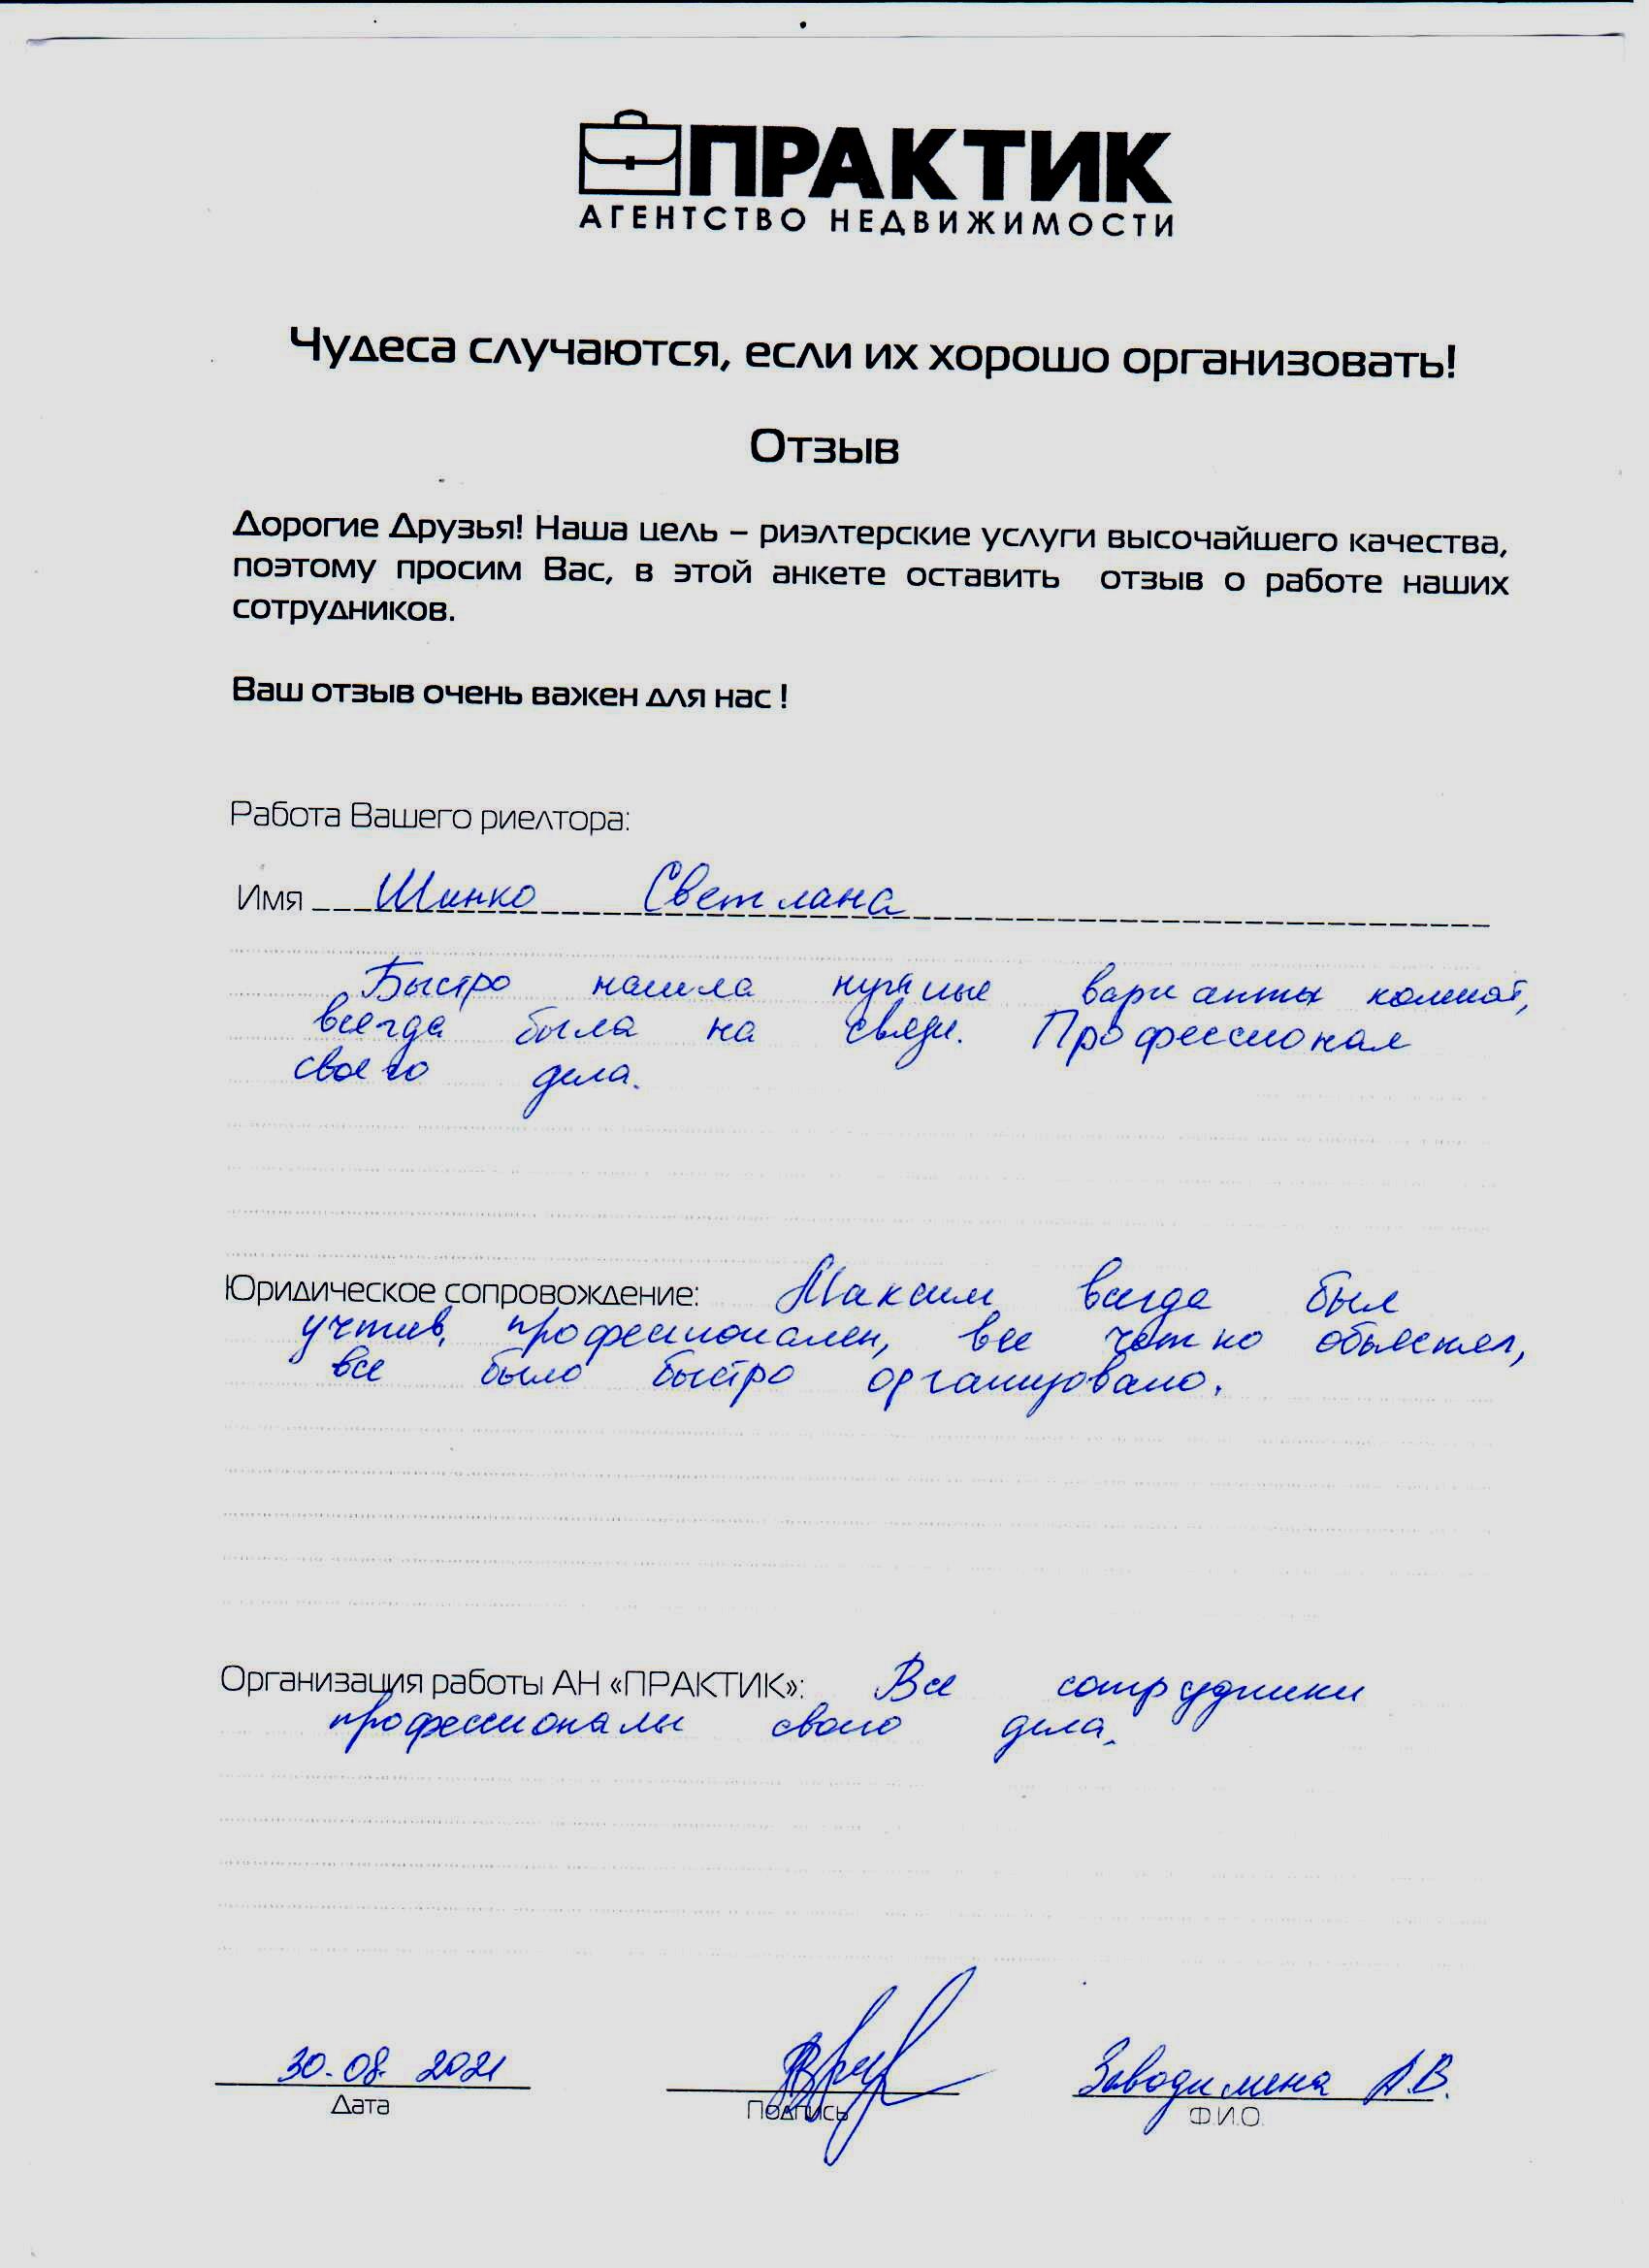 ПРАКТИК
АГЕНТСТВО НЕДВИЖИМОСТИ
Чудеса случаются, если их хорошо организовать!
Отзыв
Дорогие Друзья! Наша цель – риэлтерские услуги высочайшего качества,
поэтому просим Вас, в этой анкете оставить отзыв о работе наших
сотрудников.
Ваш отзыв очень важен для нас !
Работа Вашего риелтора:
Имя Шинко Светлана
Быстро нашла нужные варианты комнат,
всегда была на связи. Профессионал
своего дела.
Юридическое сопровождение: Максим всегда был
учтив, профессионален, все четко объяснял,
все было быстро организовано.
Организация работы АН «ПРАКТИК»: Все сотрудники
профессионалы своего дела.
30.08.2021 А.В.
Дата Подпись Ф.И.О.